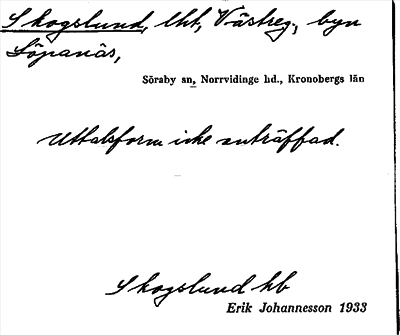 Skogslund, lht, Västreg., byn
Löpanäs,
Söraby sn, Norrvidinge hd., Kronobergs län
Uttalsform icke anträffad.
Skogslund hb
Erik Johannesson 1933